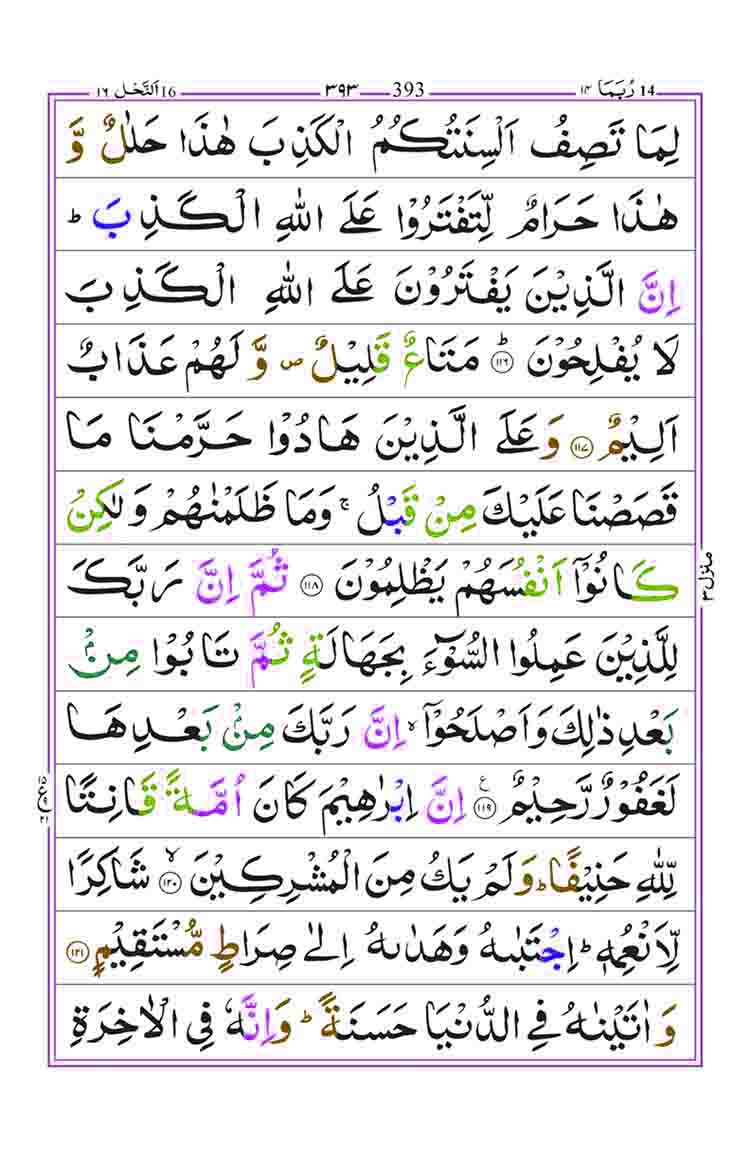 14 رُبَمَا ۱۴ 393 ۳۹۳ 16 اَلنَّحْل ۱۶
لِمَا تَصِفُ اَلْسِنَتُكُمُ الْكَذِبَ هٰذَا حَلٰلٌ وَّ
هٰذَا حَرَامٌ لِّتَفْتَرُوْا عَلَى اللّٰهِ الْكَذِبَ ؕ
اِنَّ الَّذِيْنَ يَفْتَرُوْنَ عَلَى اللّٰهِ الْكَذِبَ
لَا يُفْلِحُوْنَ ؕ ﴿۱۱۶﴾ مَتَاعٌ قَلِيْلٌ ص وَّ لَهُمْ عَذَابٌ
اَلِيْمٌ ﴿۱۱۷﴾ وَعَلَى الَّذِيْنَ هَادُوْا حَرَّمْنَا مَا
قَصَصْنَا عَلَيْكَ مِنْ قَبْلُ ۚ وَمَا ظَلَمْنٰهُمْ وَلٰكِنْ
كَانُوْۤا اَنْفُسَهُمْ يَظْلِمُوْنَ ﴿۱۱۸﴾ ثُمَّ اِنَّ رَبَّكَ
لِلَّذِيْنَ عَمِلُوا السُّوْٓءَ بِجَهَالَةٍ ثُمَّ تَابُوْا مِنْۢ
بَعْدِ ذٰلِكَ وَاَصْلَحُوْۤا ۙ اِنَّ رَبَّكَ مِنْۢ بَعْدِهَا
لَغَفُوْرٌ رَّحِيْمٌ ﴿۱۱۹﴾ ع اِنَّ اِبْرٰهِيْمَ كَانَ اُمَّةً قَانِتًا
لِّلّٰهِ حَنِيْفًا ؕ وَلَمْ يَكُ مِنَ الْمُشْرِكِيْنَ ۙ ﴿۱۲۰﴾ شَاكِرًا
لِّاَنْعُمِهٖ ؕ اِجْتَبٰىهُ وَهَدٰىهُ اِلٰى صِرَاطٍ مُّسْتَقِيْمٍ ﴿۱۲۱﴾
وَاٰتَيْنٰهُ فِى الدُّنْيَا حَسَنَةً ؕ وَاِنَّهٗ فِى الْاٰخِرَةِ
منزل ۳